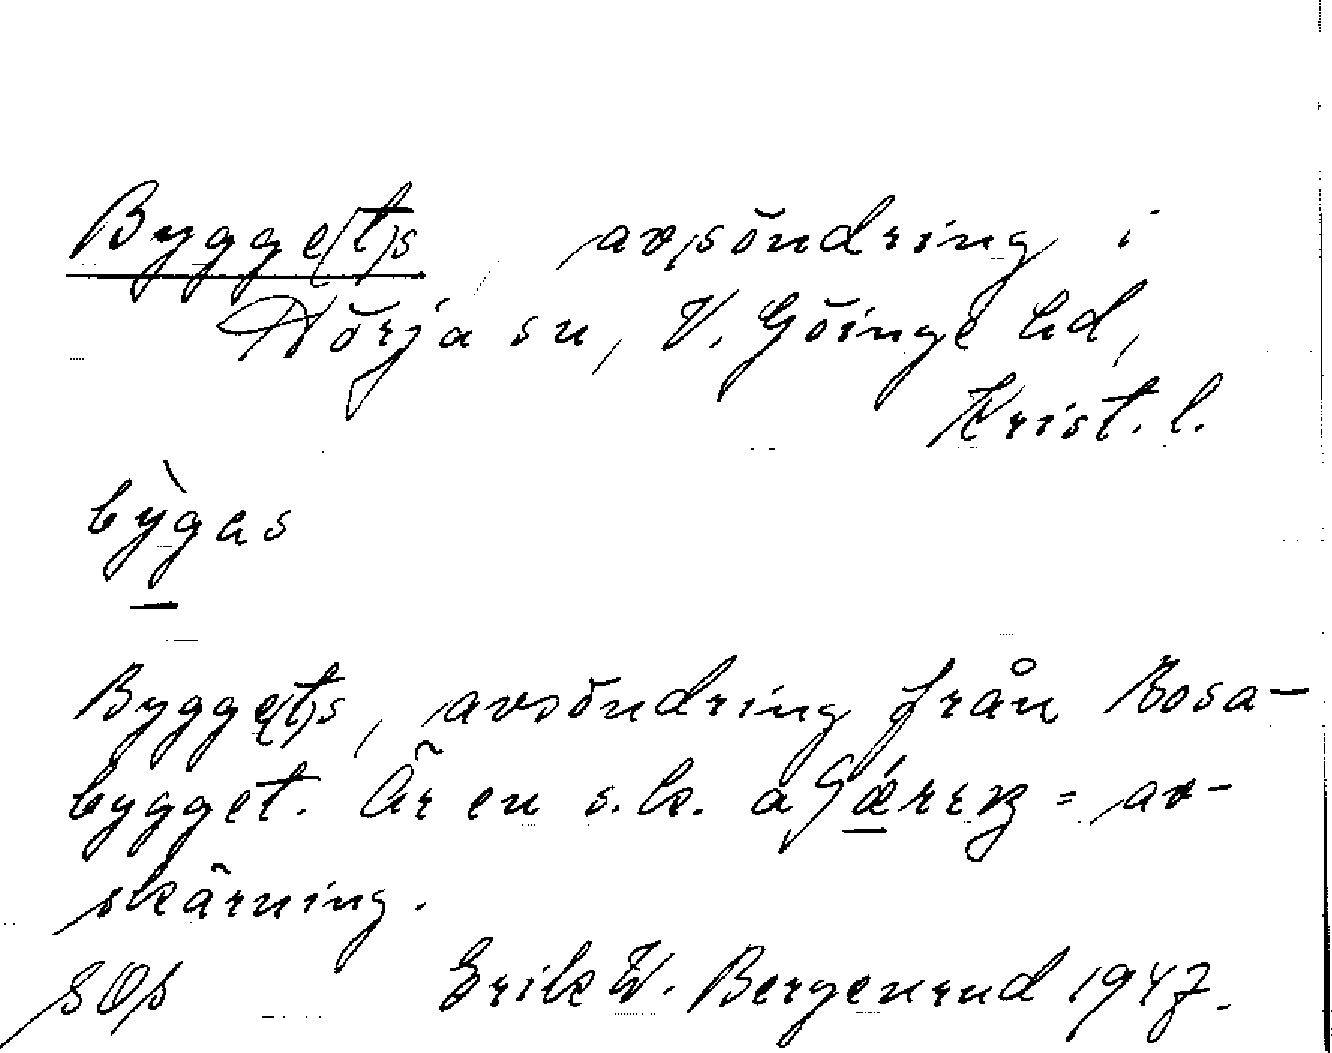 Bygge(t)s avsöndring i
Nörja sn, V. Göinge hd,
Krist. l.
bỳgas
Bygge(t)s, avsöndring från Rosa-
bygget. Är en s.k.
= av-
skärning.
SOs Erik W. Bergenrud 1947.